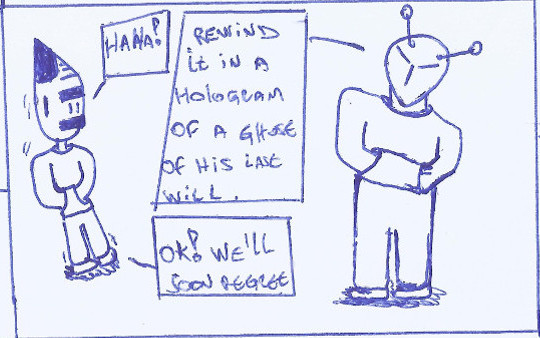 HAHA!
REWIND
it iN A
HOLOGRAM
OF A GHOSE
OF HIS LAST
WILL.
OK! WE'LL
SOON DEGREE